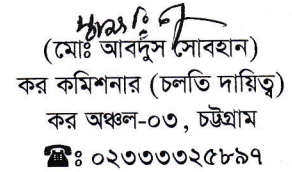 (মোঃ আবদুস সোবহান)
কর কমিশনার (চলতি দায়িত্ব)
কর অঞ্চল-০৩, চট্টগ্রাম
☎: ০২৩৩৩৩২৫৮৯৭